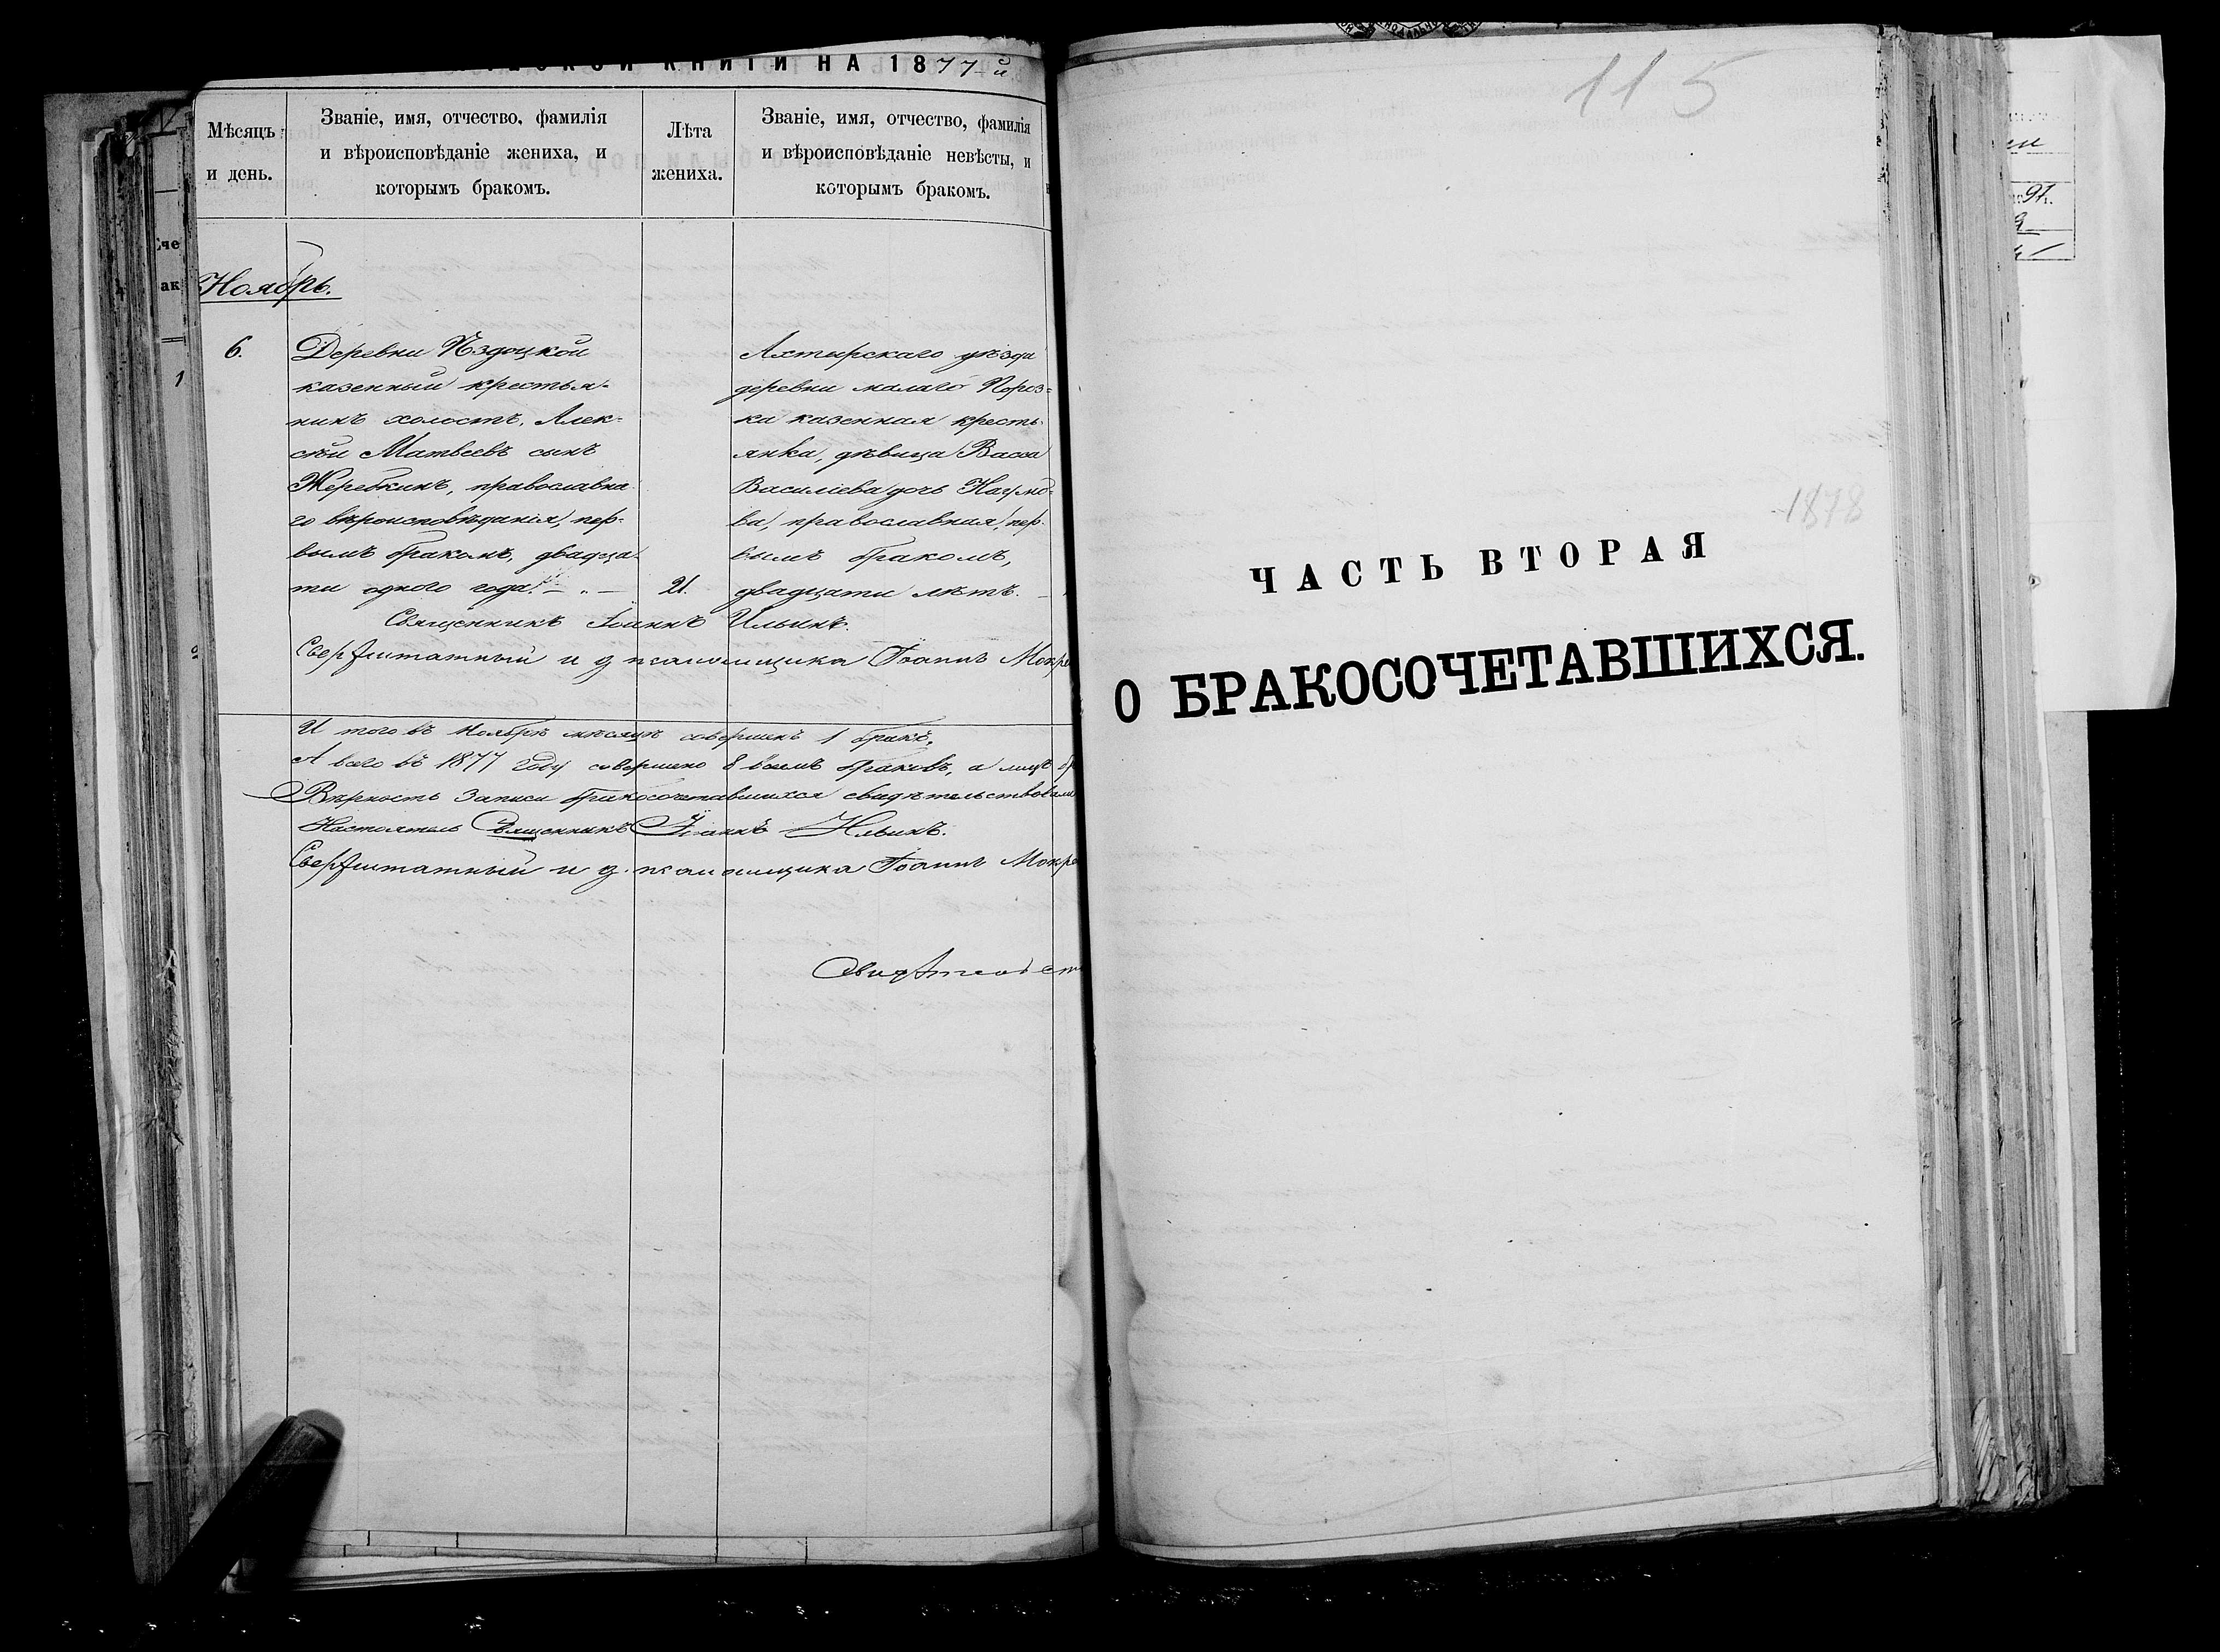 КНИГИ НА 1877-й
Мѣсяцъ
и день.
Званіе, имя, отчество, фамилія
и вѣроисповѣданіе жениха, и
которымъ бракомъ.
Лѣта
жениха.
Званіе, имя, отчество, фамилія
и вѣроисповѣданіе невѣсты, и
которымъ бракомъ.
Ноябрь.
6.
Деревни
казенный крестья-
нинъ холостъ, Алек-
сѣй Матвеевъ сынъ
Жеребкинъ, православна
го вѣроисповѣданія, пер-
вымъ бракомъ, двадца-
ти одного года.
21.
Ахтырскаго уѣзда
деревни малаго Пороз-
ка казенная кресть-
янка, дѣвица Васса
Василіева дочь Наумо-
ва, православная, пер-
вымъ бракомъ,
двадцати лѣтъ.
Священникъ Іоаннъ Ильинъ.
Сверхштатный и д псаломщика Іоаннъ Мокре
И того въ Ноябрѣ мѣсяцѣ совершенъ 1 бракъ.
А всего въ 1877 году совершено 8 браковъ, а лицъ
Вѣрность записи бракосочетавшихся свидѣтельствовали
Настоятель Священникъ Іоаннъ Ильинъ.
Сверхштатный и д. псаломщика Іоаннъ Мокре
115
1878
ЧАСТЬ ВТОРАЯ
О БРАКОСОЧЕТАВШИХСЯ.